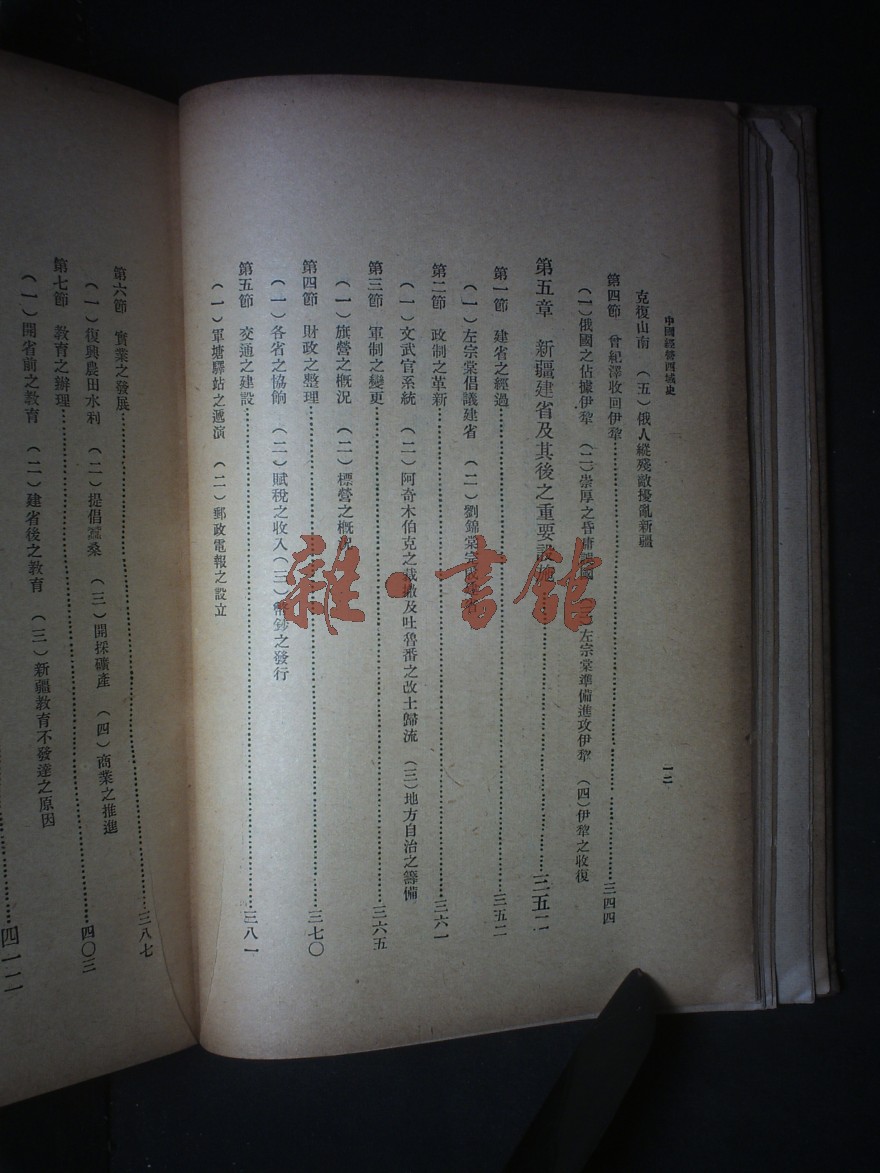 中國經營西域史
一二
克復山南　（五）俄人縱殘敵擾亂新疆
第四節　曾紀澤收回伊犂…………三四四
（一）俄國之佔據伊犂　（二）崇厚之昏庸　國　左宗棠準備進攻伊犂　（四）伊犂之收復
第五章　新疆建省及其後之重要設施…………三五二
第一節　建省之經過…………三五二
（一）左宗棠倡議建省　（二）劉錦棠完成建省
第二節　政制之革新…………三六一
（一）文武官系統　（二）阿奇木伯克之裁撤及吐魯番之改土歸流　（三）地方自治之籌備
第三節　軍制之變更…………三六五
（一）旗營之概況　（二）標營之概況
第四節　財政之整理…………三七〇
（一）各省之協餉　（二）賦稅之收入（三）幣鈔之發行
第五節　交通之建設…………三八一
（一）軍塘驛站之遞演　（二）郵政電報之設立
第六節　實業之發展…………三八七
（一）復興農田水利　（二）提倡蠶桑　（三）開採礦產　（四）商業之推進
第七節　教育之辦理…………四〇三
（一）開省前之教育　（二）建省後之教育　（三）新疆教育不發達之原因
…………四一一
雜·書館